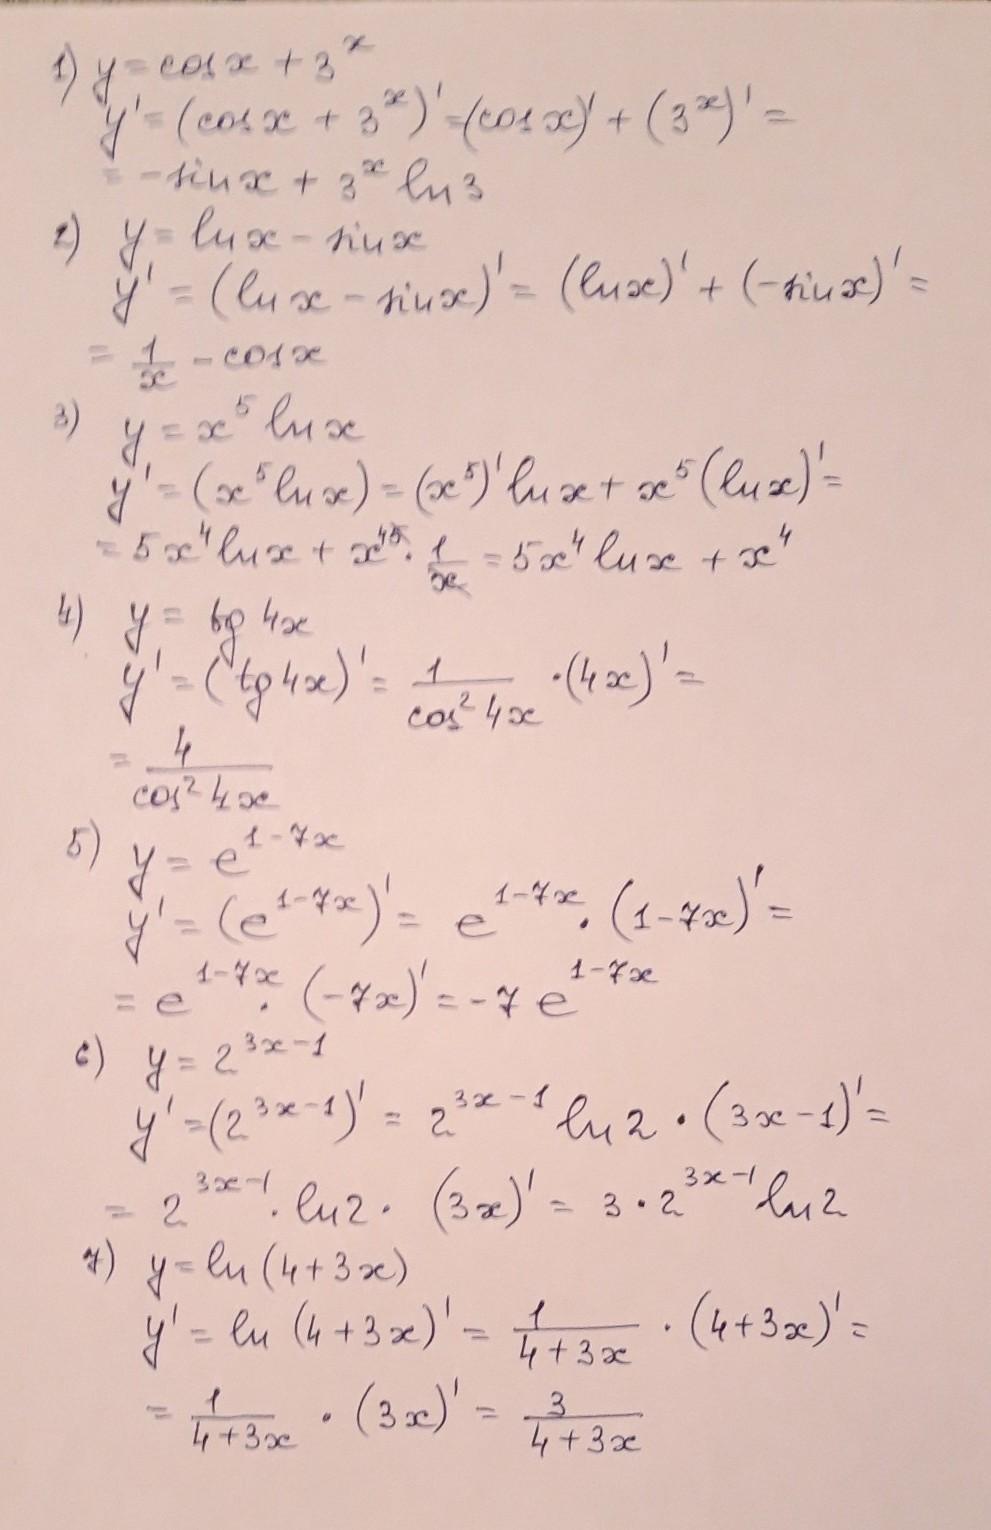 1) y = cos x + 3^x
y' = (cos x + 3^x)' = (cos x)' + (3^x)' =
= -sin x + 3^x ln 3
2) y = ln x - sin x
y' = (ln x - sin x)' = (ln x)' + (-sin x)' =
= 1/x - cos x
3) y = x^5 ln x
y' = (x^5 ln x) = (x^5)' ln x + x^5 (ln x)' =
= 5x^4 ln x + x^{4 5} · 1/x = 5x^4 ln x + x^4
4) y = tg 4x
y' = (tg 4x)' = 1/(cos^2 4x) · (4x)' =
= 4/(cos^2 4x)
5) y = e^{1-7x}
y' = (e^{1-7x})' = e^{1-7x} · (1-7x)' =
= e^{1-7x} · (-7x)' = -7 e^{1-7x}
6) y = 2^{3x-1}
y' = (2^{3x-1})' = 2^{3x-1} ln 2 · (3x-1)' =
= 2^{3x-1} · ln 2 · (3x)' = 3 · 2^{3x-1} ln 2
7) y = ln (4+3x)
y' = ln (4+3x)' = 1/(4+3x) · (4+3x)' =
= 1/(4+3x) · (3x)' = 3/(4+3x)